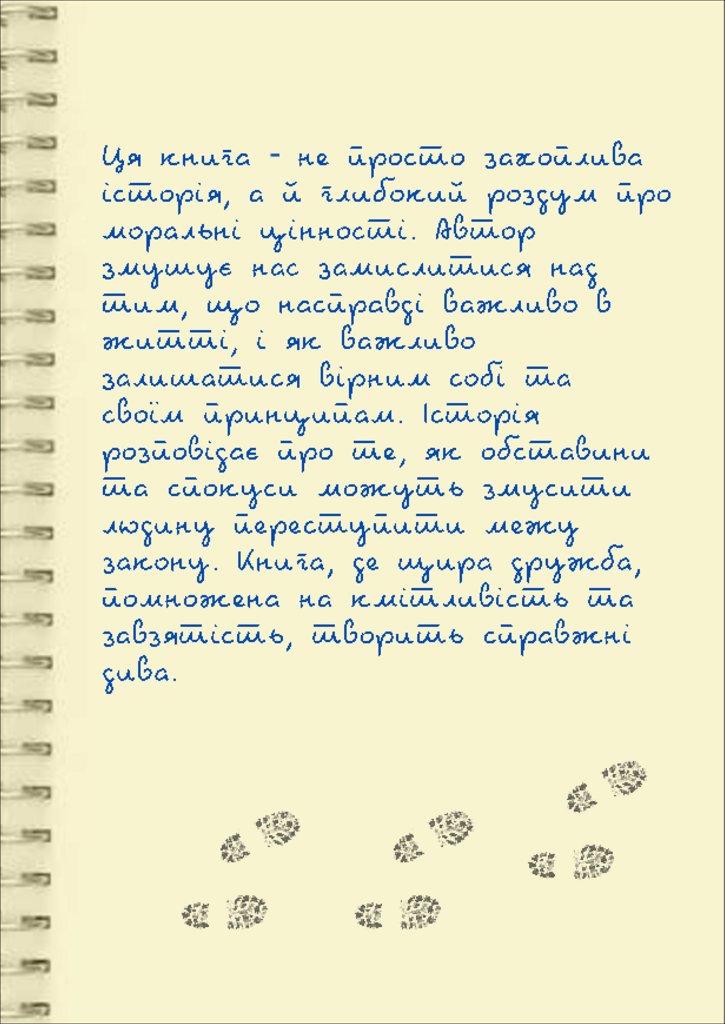 Ця книга - не просто захоплива
історія, а й глибокий роздум про
моральні цінності. Автор
змушує нас замислитися над
тим, що насправді важливо в
житті, і як важливо
залишатися вірним собі та
своїм принципам. Історія
розповідає про те, як обставини
та спокуси можуть змусити
людину переступити межу
закону. Книга, де щира дружба,
помножена на кмітливість та
завзятість, творить справжні
дива.